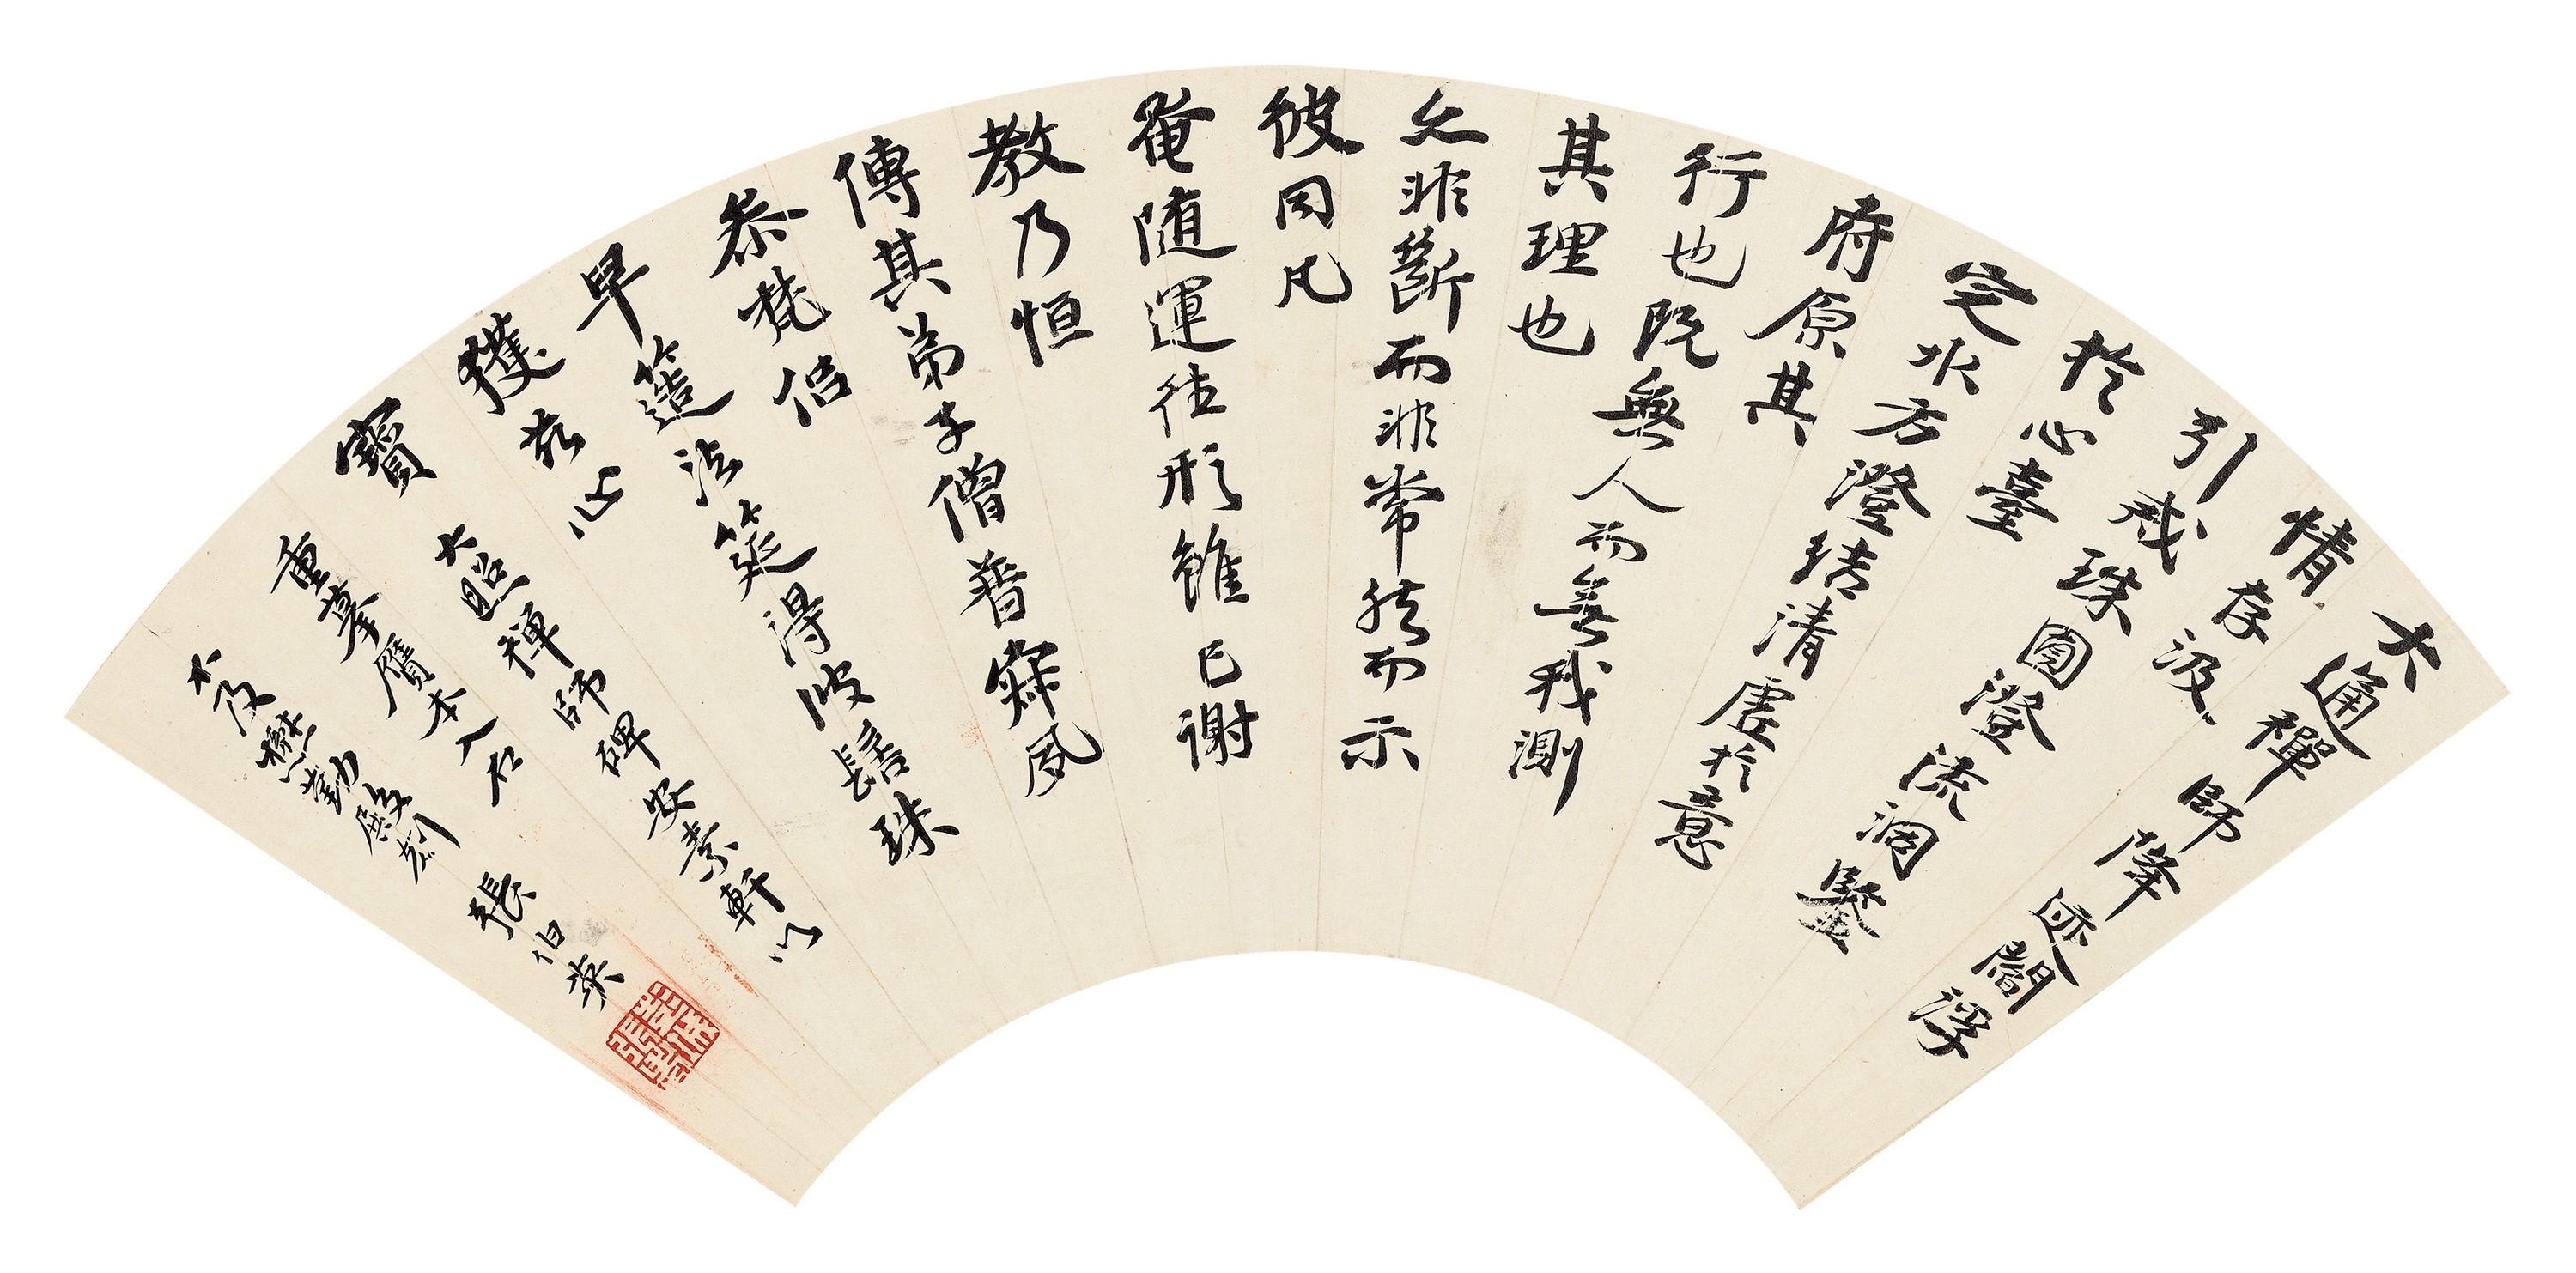 大通禪師降迹閻浮
情存汲
引戒珠圓澄流洞鑒
於心臺
定水方澄結清虛於意
府原其
行也既無人而無我測
其理也
乃非斷而非常然而示
彼同凡
奄隨運往形雖已謝
教乃恒
傳其弟子僧普寂夙
恭梵侶
早筵法筵得彼髻珠
獲茲心
寶
大照禪師碑安素軒以
重摹贋本入石
大及懋勤殿刻
張伯英